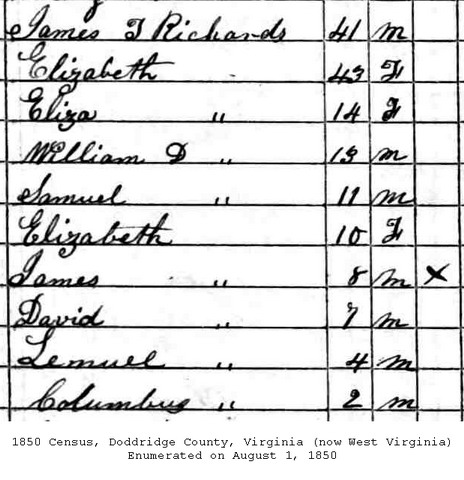 James T Richards 41 m
Elizabeth 43 F
Eliza " 14 F
William D " 13 m
Samuel " 11 m
Elizabeth 10 F
James " 8 m X
David " 7 m
Lemuel " 4 m
Columbus " 2 m
1850 Census, Doddridge County, Virginia (now West Virginia)
Enumerated on August 1, 1850